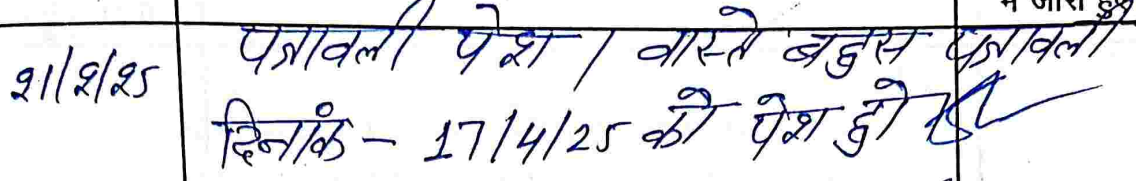 में जारी हुए
21/2/25 पत्रावली पेश । वास्ते बहुस पत्रावली
दिनांक - 17/4/25 को पेश हो